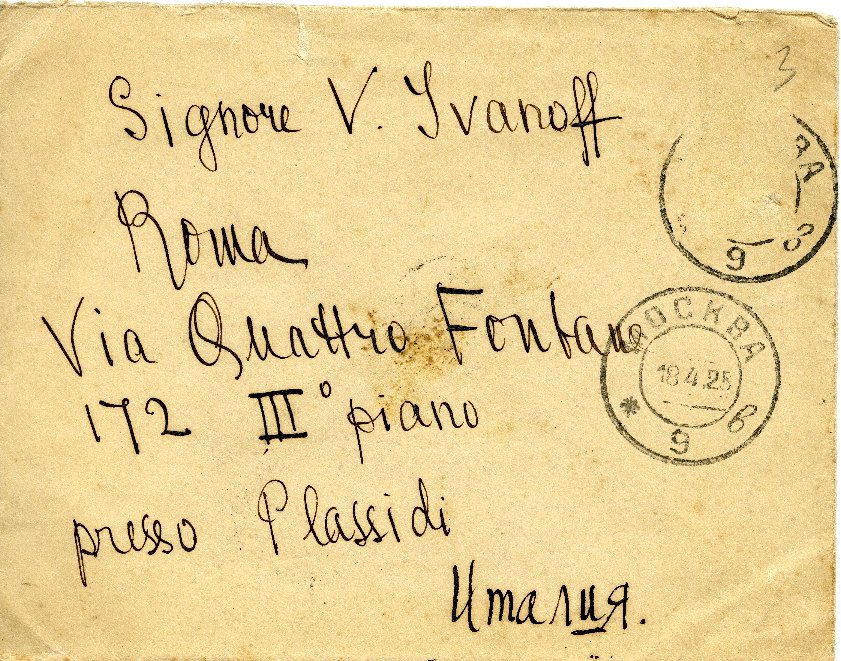 3
Signore V. Ivanoff
Roma
Via Quattro Fontane
172 III° piano
presso Plassidi
Италия.
ВА
9 8
МОСКВА
18.4.25
* 9 в